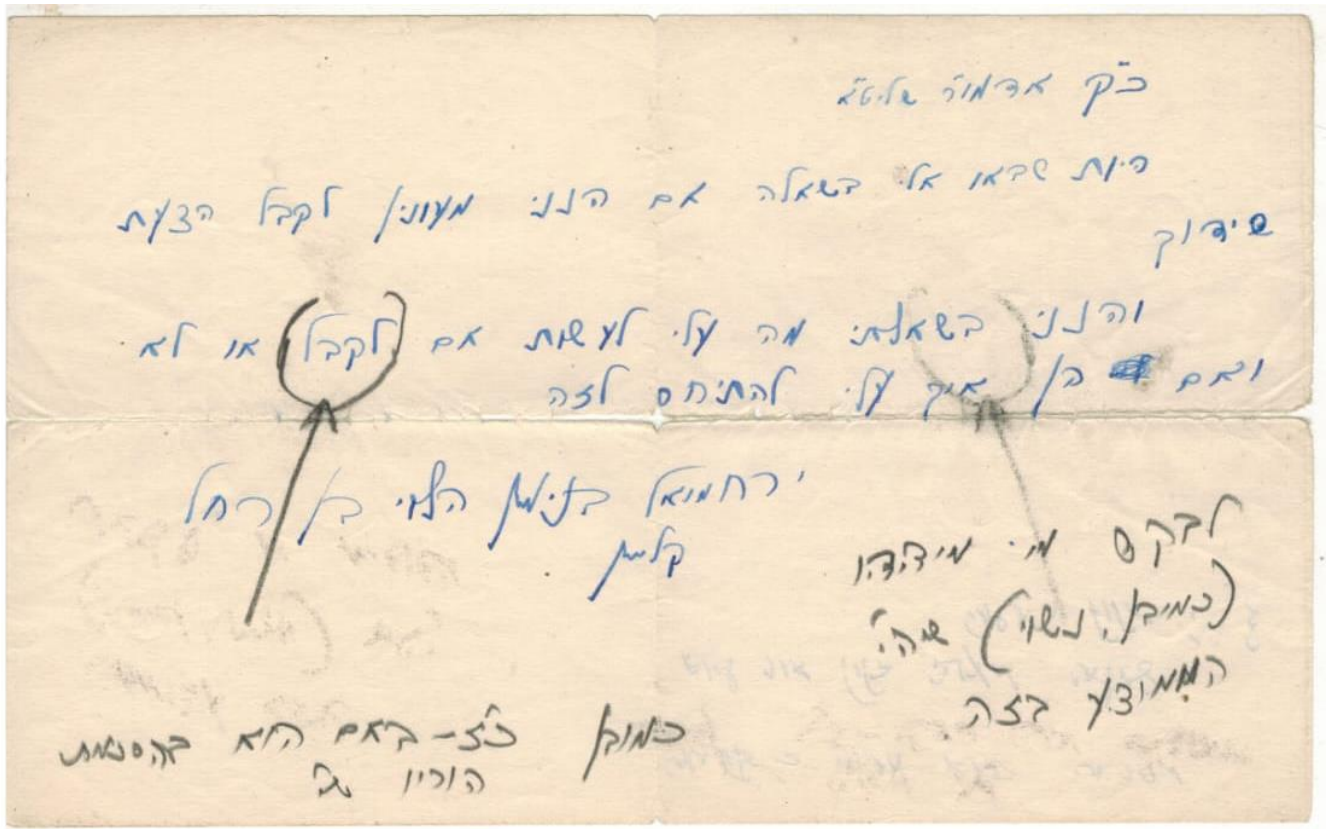 כ"ק אדמו"ר שליט"א
היות שבאו אלי בשאלה אם הנני מעונין לקבל הצעת
שידוך
והנני בשאלתי מה עלי לעשות אם לקבל או לא
ואם כן איך עלי להתיחס לזה
ירחמיאל בנימין הלוי בן רחל
קליין
לבקש מי מידידיו
(כמובן נשוי) שיהי'
הממוצע בזה
כמובן כ"ז – באם הוא בהסכמת
הוריו שי'